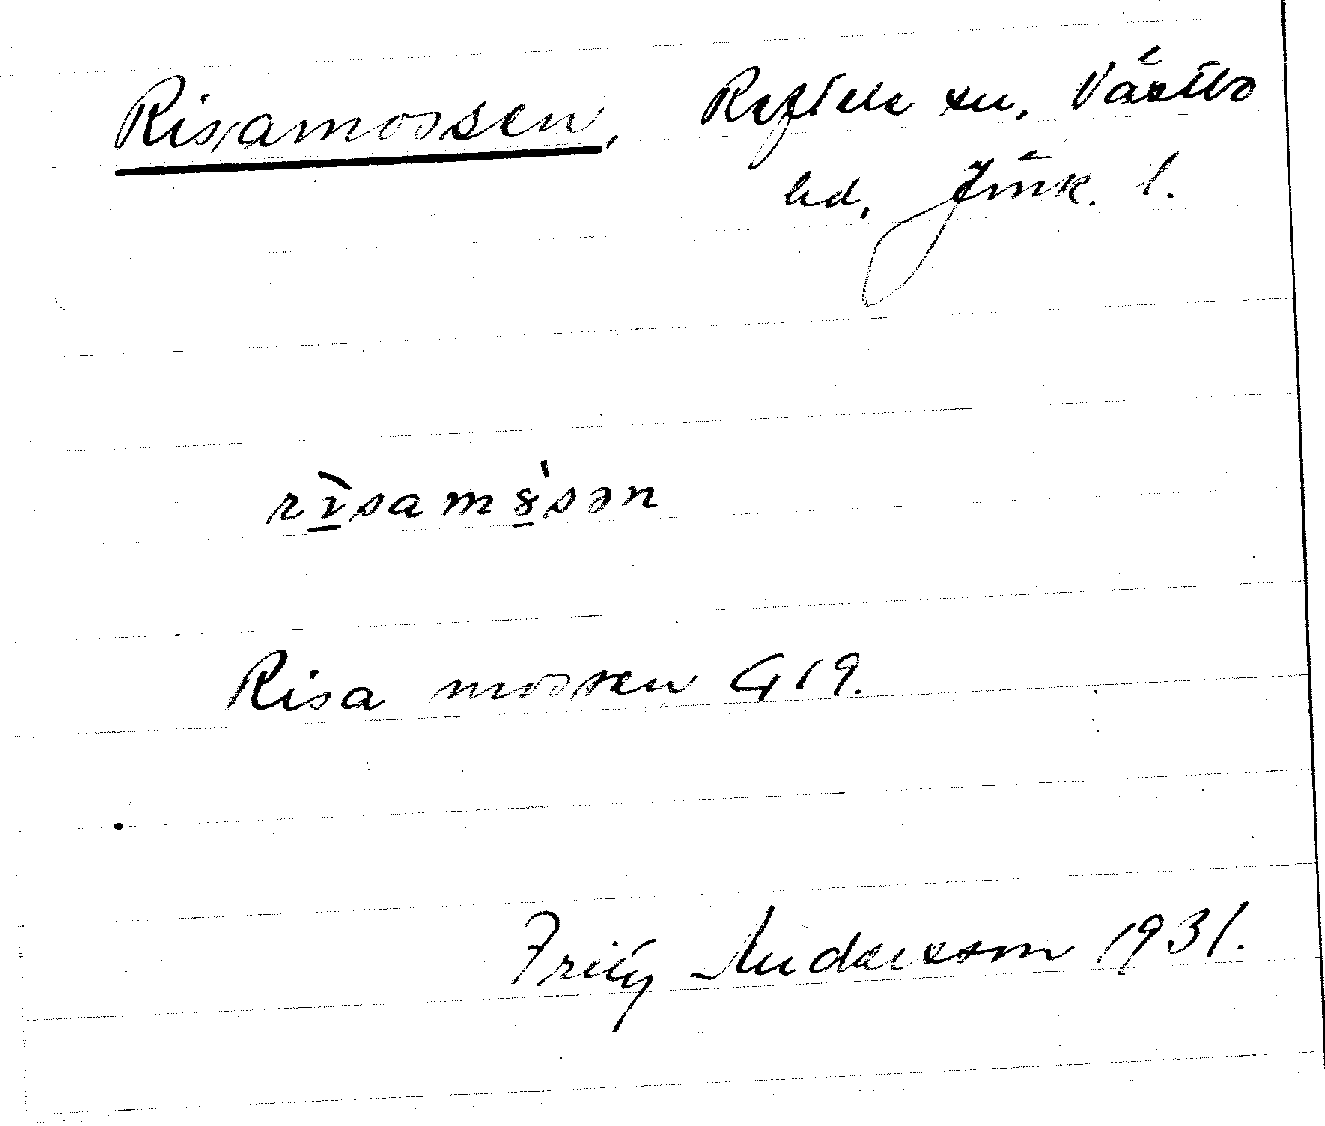 Risamossen, Reftele sn, Västbo
hd, Jönk. l.
rìsamòsən
Risa mossen G 19.
Fritz Andersson 1931.